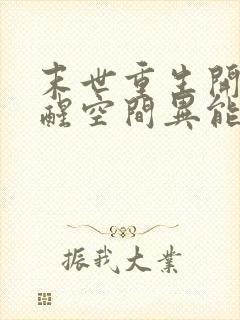 末世重生開
醒空間異能
振我大業